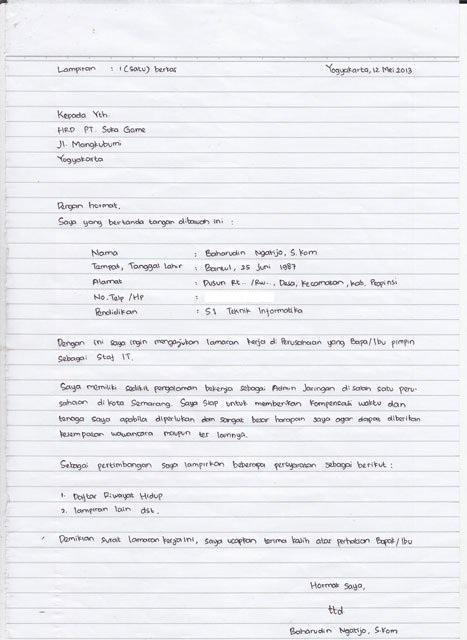 Lampiran : 1 (satu) berkas Yogyakarta, 12 Mei 2013
Kepada Yth.
HRD PT. Suka Game
Jl. Mangkubumi
Yogyakarta
Dengan hormat,
Saya yang bertanda tangan dibawah ini :
Nama : Baharudin Ngatijo, S.Kom
Tempat, Tanggal Lahir : Bantul, 25 Juni 1987
Alamat : Dusun Rt.. /Rw.., Desa, Kecamatan, Kab, Propinsi
No. Telp /HP :
Pendidikan : S1 Teknik Informatika
Dengan ini saya ingin mengajukan lamaran kerja di Perusahaan yang Bapa/Ibu pimpin
sebagai Staf IT.
Saya memiliki sedikit pengalaman bekerja sebagai Admin Jaringan di salah satu peru-
sahaan di kota Semarang. Saya siap untuk memberikan kompensasi waktu dan
tenaga saya apabila diperlukan dan sangat besar harapan saya agar dapat diberikan
kesempatan wawancara maupun tes lainnya.
Sebagai pertimbangan saya lampirkan beberapa persyaratan sebagai berikut :
1. Daftar Riwayat Hidup
2. lampiran lain dst.
Demikian surat lamaran kerja ini, saya ucapkan terima kasih atas perhatian Bapak/Ibu
Hormat Saya,
ttd
Baharudin Ngatijo, S.Kom